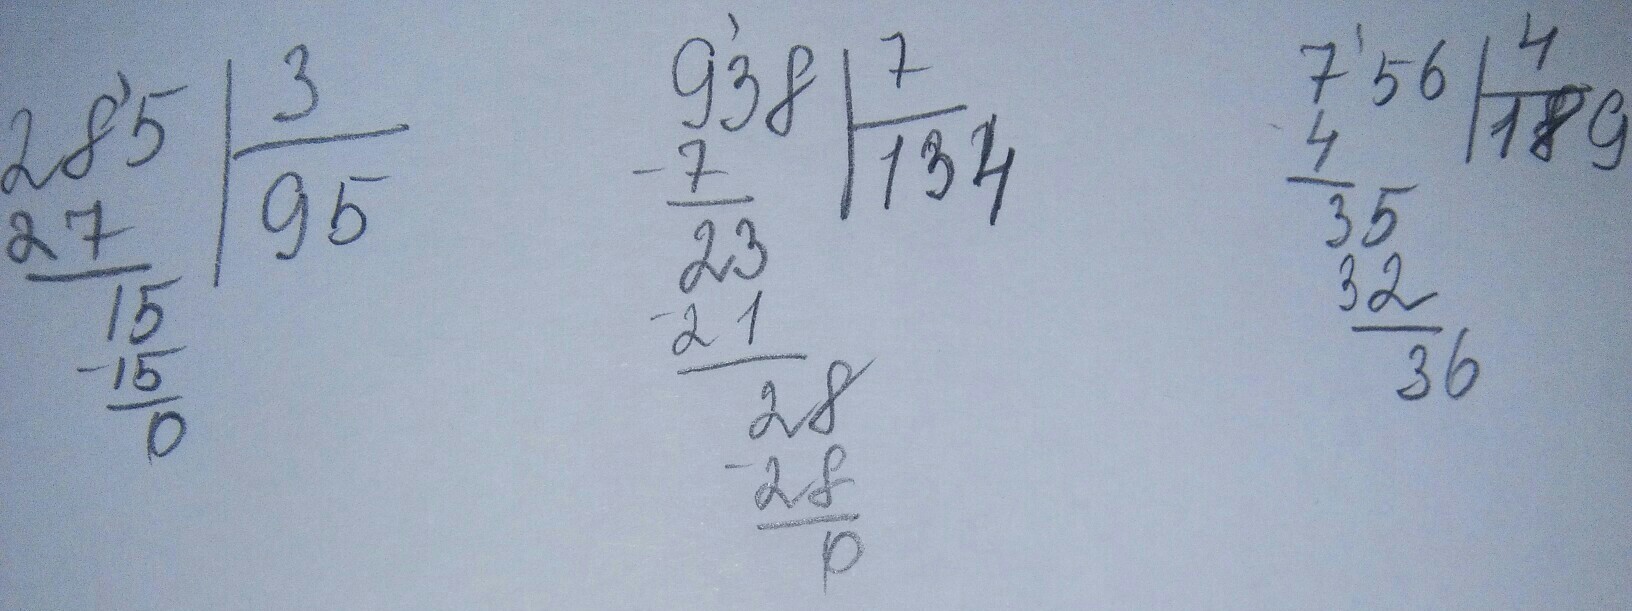 285 3
27 95
15
-15
0
938 7
-7 134
23
-21
28
-28
0
756 4
-4 189
35
32
36